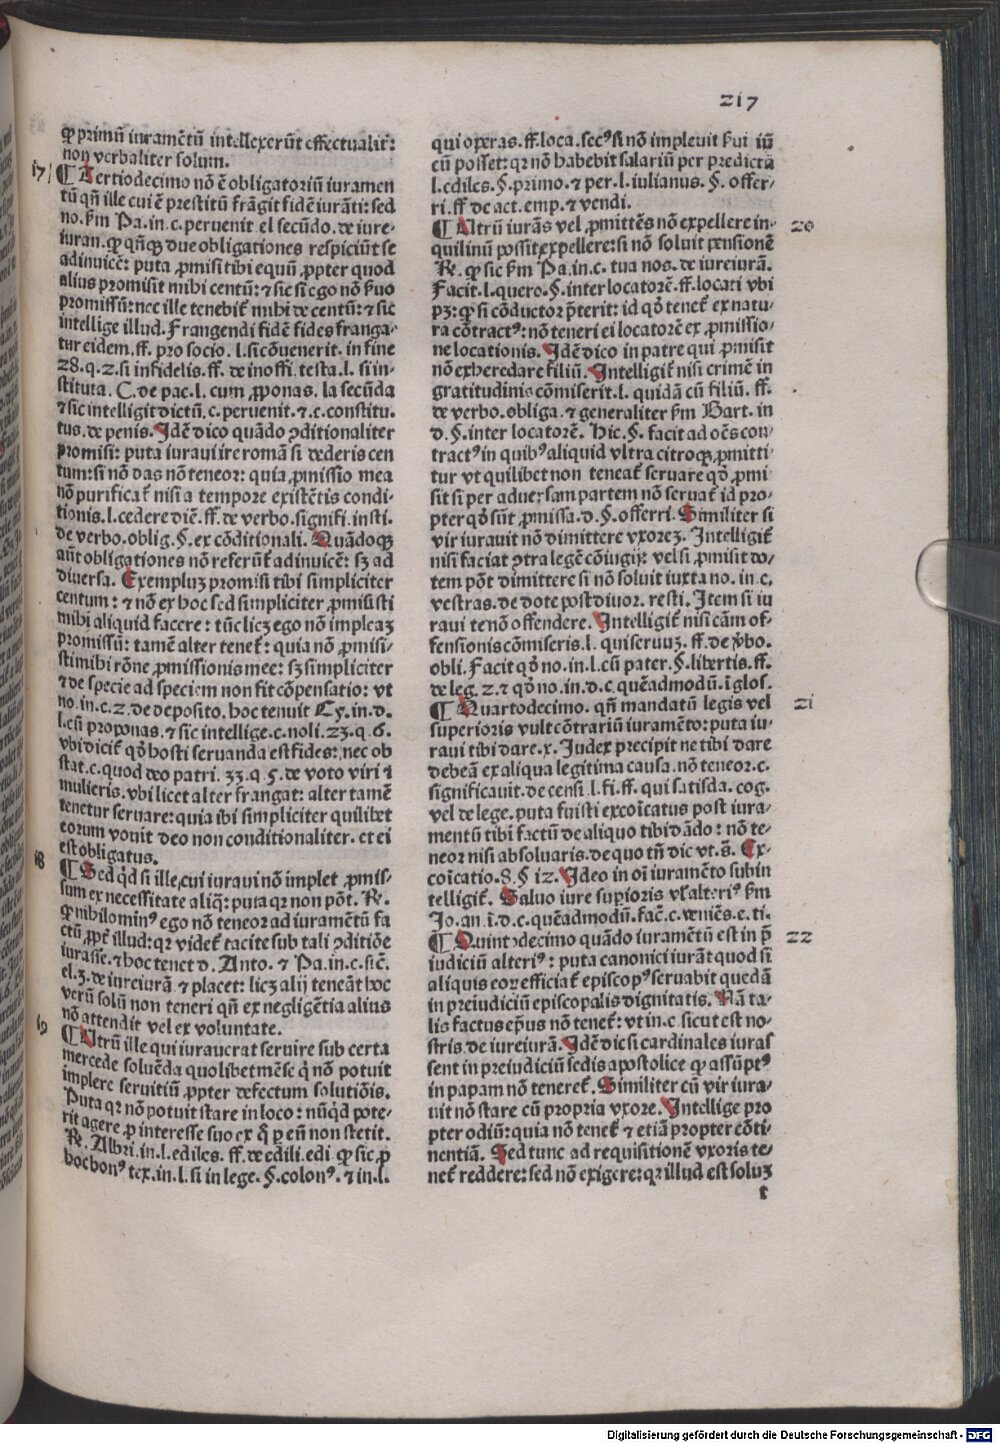 217
ꝙ primū iuramētū intellexerūt effectualit᷑:
non verbaliter solum.
17
¶ Tertiodecimo nō ē obligatoriū iuramen
tū qñ ille cui ē prestitū frāgit fidē iurāti: sed
no. ẜm Pa. in. c. peruenit. el secūdo. de iure-
iuran. ꝙ qñqꝫ due obligationes respiciūt se
adinuicē: puta ꝓmisi tibi equū ꝓpter quod
alius promisit mihi centū: ⁊ sic si ego nō ẜuo
promissū: nec ille tenebit᷑ mihi de centū: ⁊ sic
intellige illud. Frangendi fidē fides franga-
tur eidem. ff. pro socio. l. si cōuenerit. in fine
28. q. 2. si infidelis. ff. de inoffi. testa. l. si in-
stituta. C. de pac. l. cum ꝓponas. la secūda
⁊ sic intelligit dictū. c. peruenit. ⁊. c. constitu-
tus. de penis. Idē dico quādo ꝯditionaliter
promisi: puta iuraui ire romā si dederis cen
tum: si nō das nō teneor: quia ꝓmissio mea
nō purificat᷑ nisi a tempore existētis condi-
tionis. l. cedere diē. ff. de verbo. signifi. insti.
de verbo. oblig. §. ex cōditionali. Quādoqꝫ
aūt obligationes nō referūt᷑ adinuicē: sꝫ ad
diuersa. Exempluꝫ promisi tibi simpliciter
centum: ⁊ nō ex hoc sed simpliciter ꝓmisisti
mihi aliquid facere: tūc licꝫ ego nō impleaꝫ
promissū: tamē alter tenet᷑: quia nō ꝓmisi-
sti mihi rōne ꝓmissionis mee: sꝫ simpliciter
⁊ de specie ad speciem non fit cōpensatio: vt
no. in. c. 2. de deposito. hoc tenuit Cy. in. d.
l. cū proponas. ⁊ sic intellige. c. noli. 23. q. 6.
vbi dicit᷑ qͦ hosti seruanda est fides: nec ob
stat. c. quod deo patri. 33. q. 5. de voto viri ⁊
mulieris. vbi licet alter frangat: alter tamē
tenetur seruare: quia ibi simpliciter quilibet
eorum vouit deo non conditionaliter. et ei
est obligatus.
18
¶ Sed qͥd si ille, cui iuraui nō implet ꝓmis-
sum ex necessitate aliq̄: puta qꝛ non pōt. R.
ꝙ nihilominꝰ ego nō teneor ad iuramētū fa
ctū ꝓpt᷑ illud: qꝛ videt᷑ tacite sub tali ꝯditiōe
iurasse. ⁊ hoc tenet d. Anto. ⁊ Pa. in. c. sicē.
el. 3. de iureiurā. ⁊ placet: licꝫ alij teneāt hoc
verū solū non teneri qñ ex negligētia alius
nō attendit vel ex voluntate.
19
¶ Utrū ille qui iurauerat seruire sub certa
mercede soluēda quolibet mēse q̇ nō potuit
implere seruitiū ꝓpter defectum solutiōis.
Puta qꝛ nō potuit stare in loco: nūqͥd pote-
rit agere ꝓ interesse suo ex q̊ ꝑ eū non stetit.
R. Albri. in. l. ediles. ff. de edili. edi ꝙ sic, ꝓ
hoc bonꝰ tex. in. l. si in lege. §. colonꝰ. ⁊ in. l.
qui operas. ff. loca. secꝰ si nō impleuit ẜui iū
cū posset: qꝛ nō habebit salariū per predicta
l. ediles. §. primo. ⁊ per. l. iulianus. §. offer-
ri. ff de act. emp. ⁊ vendi.
20
¶ Utrū iurās vel ꝓmittēs nō expellere in-
quilinū possit expellere: si nō soluit pensionē
R. ꝙ sic ẜm Pa. in. c. tua nos. de iureiurā.
Facit. l. quero. §. inter locatorē. ff. locati vbi
pꝫ: ꝙ si cōductor p̄terit: id qͦ tenet᷑ ex natu-
ra cōtractꝰ: nō teneri ei locatorē ex ꝓmissio-
ne locationis. Idē dico in patre qui ꝓmisit
nō exheredare filiū. Intelligit᷑ nisi crimē in
gratitudinis cōmiserit. l. quidā cū filiū. ff.
de verbo. obliga. ⁊ generaliter ẜm Bart. in
d. §. inter locatorē. Hic. §. facit ad oēs con-
tractꝰ in quibꝰ aliquid vltra citroqꝫ, ꝓmitti-
tur vt quilibet non teneat᷑ seruare qͦ ꝓmi
sit si per aduersam partem nō seruat᷑ id pro-
pter qͦ sūt ꝓmissa. d. §. offerri. Similiter si
vir iurauit nō dimittere vxoreꝫ. Intelligit᷑
nisi faciat ꝯtra legē cōiugij: vel si ꝓmisit do-
tem pōt dimittere si nō soluit iuxta no. in. c.
vestras. de dote post diuor. resti. Item si iu
raui te nō offendere. Intelligit᷑ nisi cām of-
fensionis cōmiseris. l. qui seruuꝫ. ff. de ṽbo.
obli. Facit qͦ no. in. l. cū pater. §. libertis. ff.
de leg. 2. ⁊ qͦ no. in. d. c. quēadmodū. ī glos.
21
¶ Quartodecimo. qñ mandatū legis vel
superioris vult cōtrariū iuramēto: puta iu-
raui tibi dare. x. Iudex precipit ne tibi dare
debeā ex aliqua legitima causa. nō teneor. c.
significauit. de censi. l. fi. ff. qui satisda. cog.
vel de lege. puta fuisti excoīcatus post iura-
mentū tibi factū de aliquo tibi dādo: nō te-
neor nisi absoluaris. de quo tñ dic vt. s̄. Ex-
coīcatio. 8. § 12. Ideo in oī iuramēto subin
telligit᷑. Saluo iure supioris vl᷑ alteriꝰ ẜm
Jo. an. ī. d. c. quēadmodū. fac̄. c. veniēs. e. ti.
22
¶ Quintodecimo quādo iuramētū est in p̄
iudiciū alteriꝰ: puta canonici iurāt quod si
aliquis eoꝝ efficiat᷑ episcopꝰ seruabit quedā
in preiudiciū episcopalis dignitatis. Nā ta-
lis factus ep̄us nō tenet᷑: vt in. c. sicut est no-
stris. de iureiurā. Idē dic si cardinales iuras
sent in preiudiciū sedis apostolice ꝙ assūptꝰ
in papam nō teneret᷑. Similiter cū vir iura-
uit nō stare cū propria vxore. Intellige pro
pter odiū: quia nō tenet᷑ ⁊ etiā propter cōti-
nentiā. Sed tunc ad requisitionē vxoris te-
net᷑ reddere: sed nō exigere: qꝛ illud est soluꝫ
t
Digitalisierung gefördert durch die Deutsche Forschungsgemeinschaft - DFG